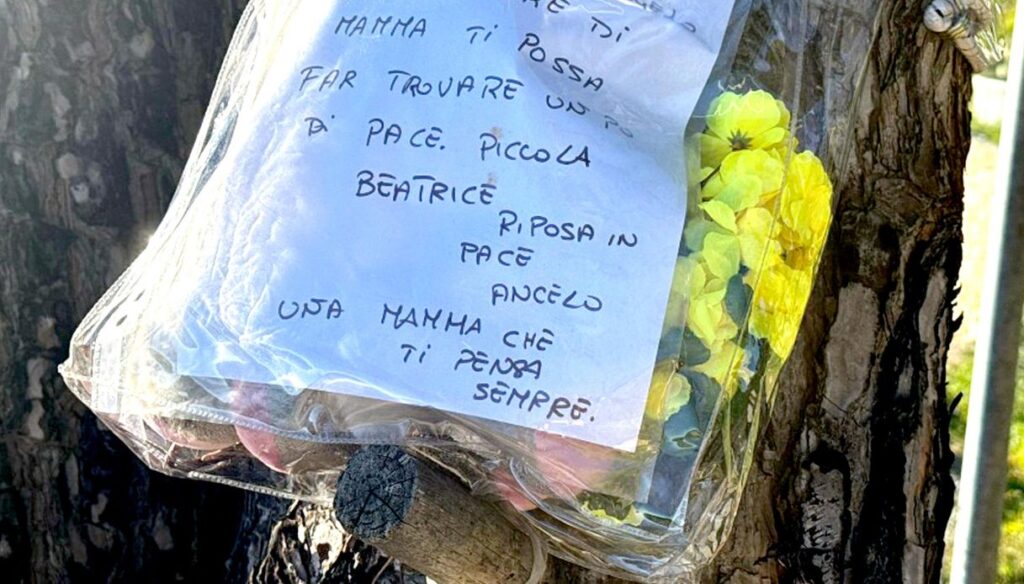 RE DI
MAMMA TI POSSA
FAR TROVARE UN PO
DI PACE. PICCOLA
BEATRICE
RIPOSA IN
PACE
ANGELO
UNA MAMMA CHE
TI PENSA
SEMPRE.